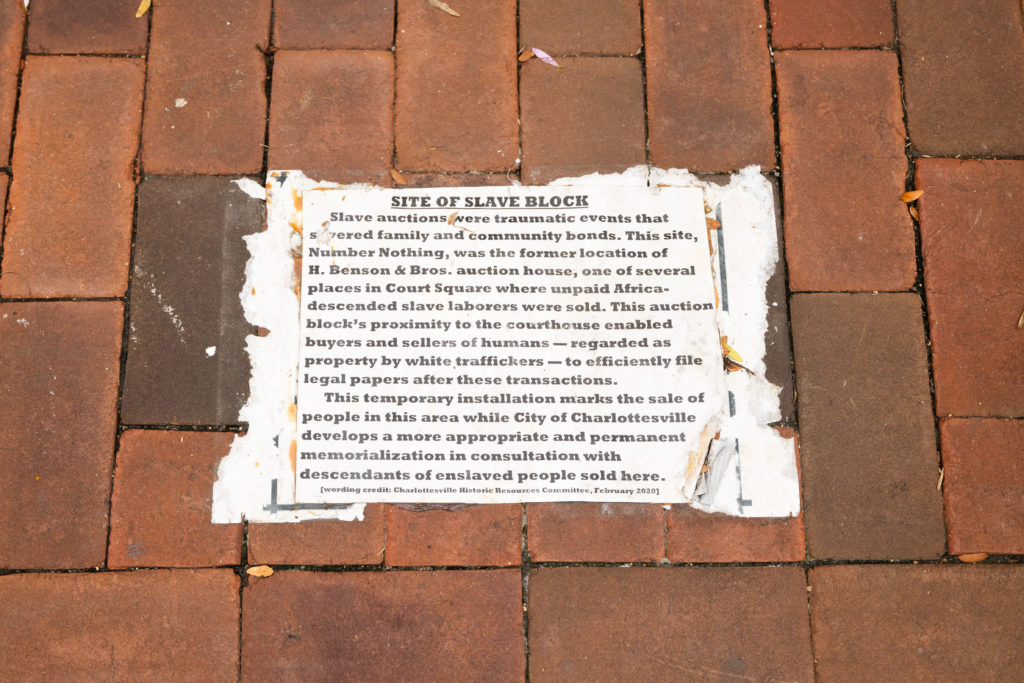 SITE OF SLAVE BLOCK
Slave auctions were traumatic events that
severed family and community bonds. This site,
Number Nothing, was the former location of
H. Benson & Bros. auction house, one of several
places in Court Square where unpaid Africa-
descended slave laborers were sold. This auction
block's proximity to the courthouse enabled
buyers and sellers of humans — regarded as
property by white traffickers — to efficiently file
legal papers after these transactions.
This temporary installation marks the sale of
people in this area while City of Charlottesville
develops a more appropriate and permanent
memorialization in consultation with
descendants of enslaved people sold here.
[wording credit: Charlottesville Historic Resources Committee, February 2020]